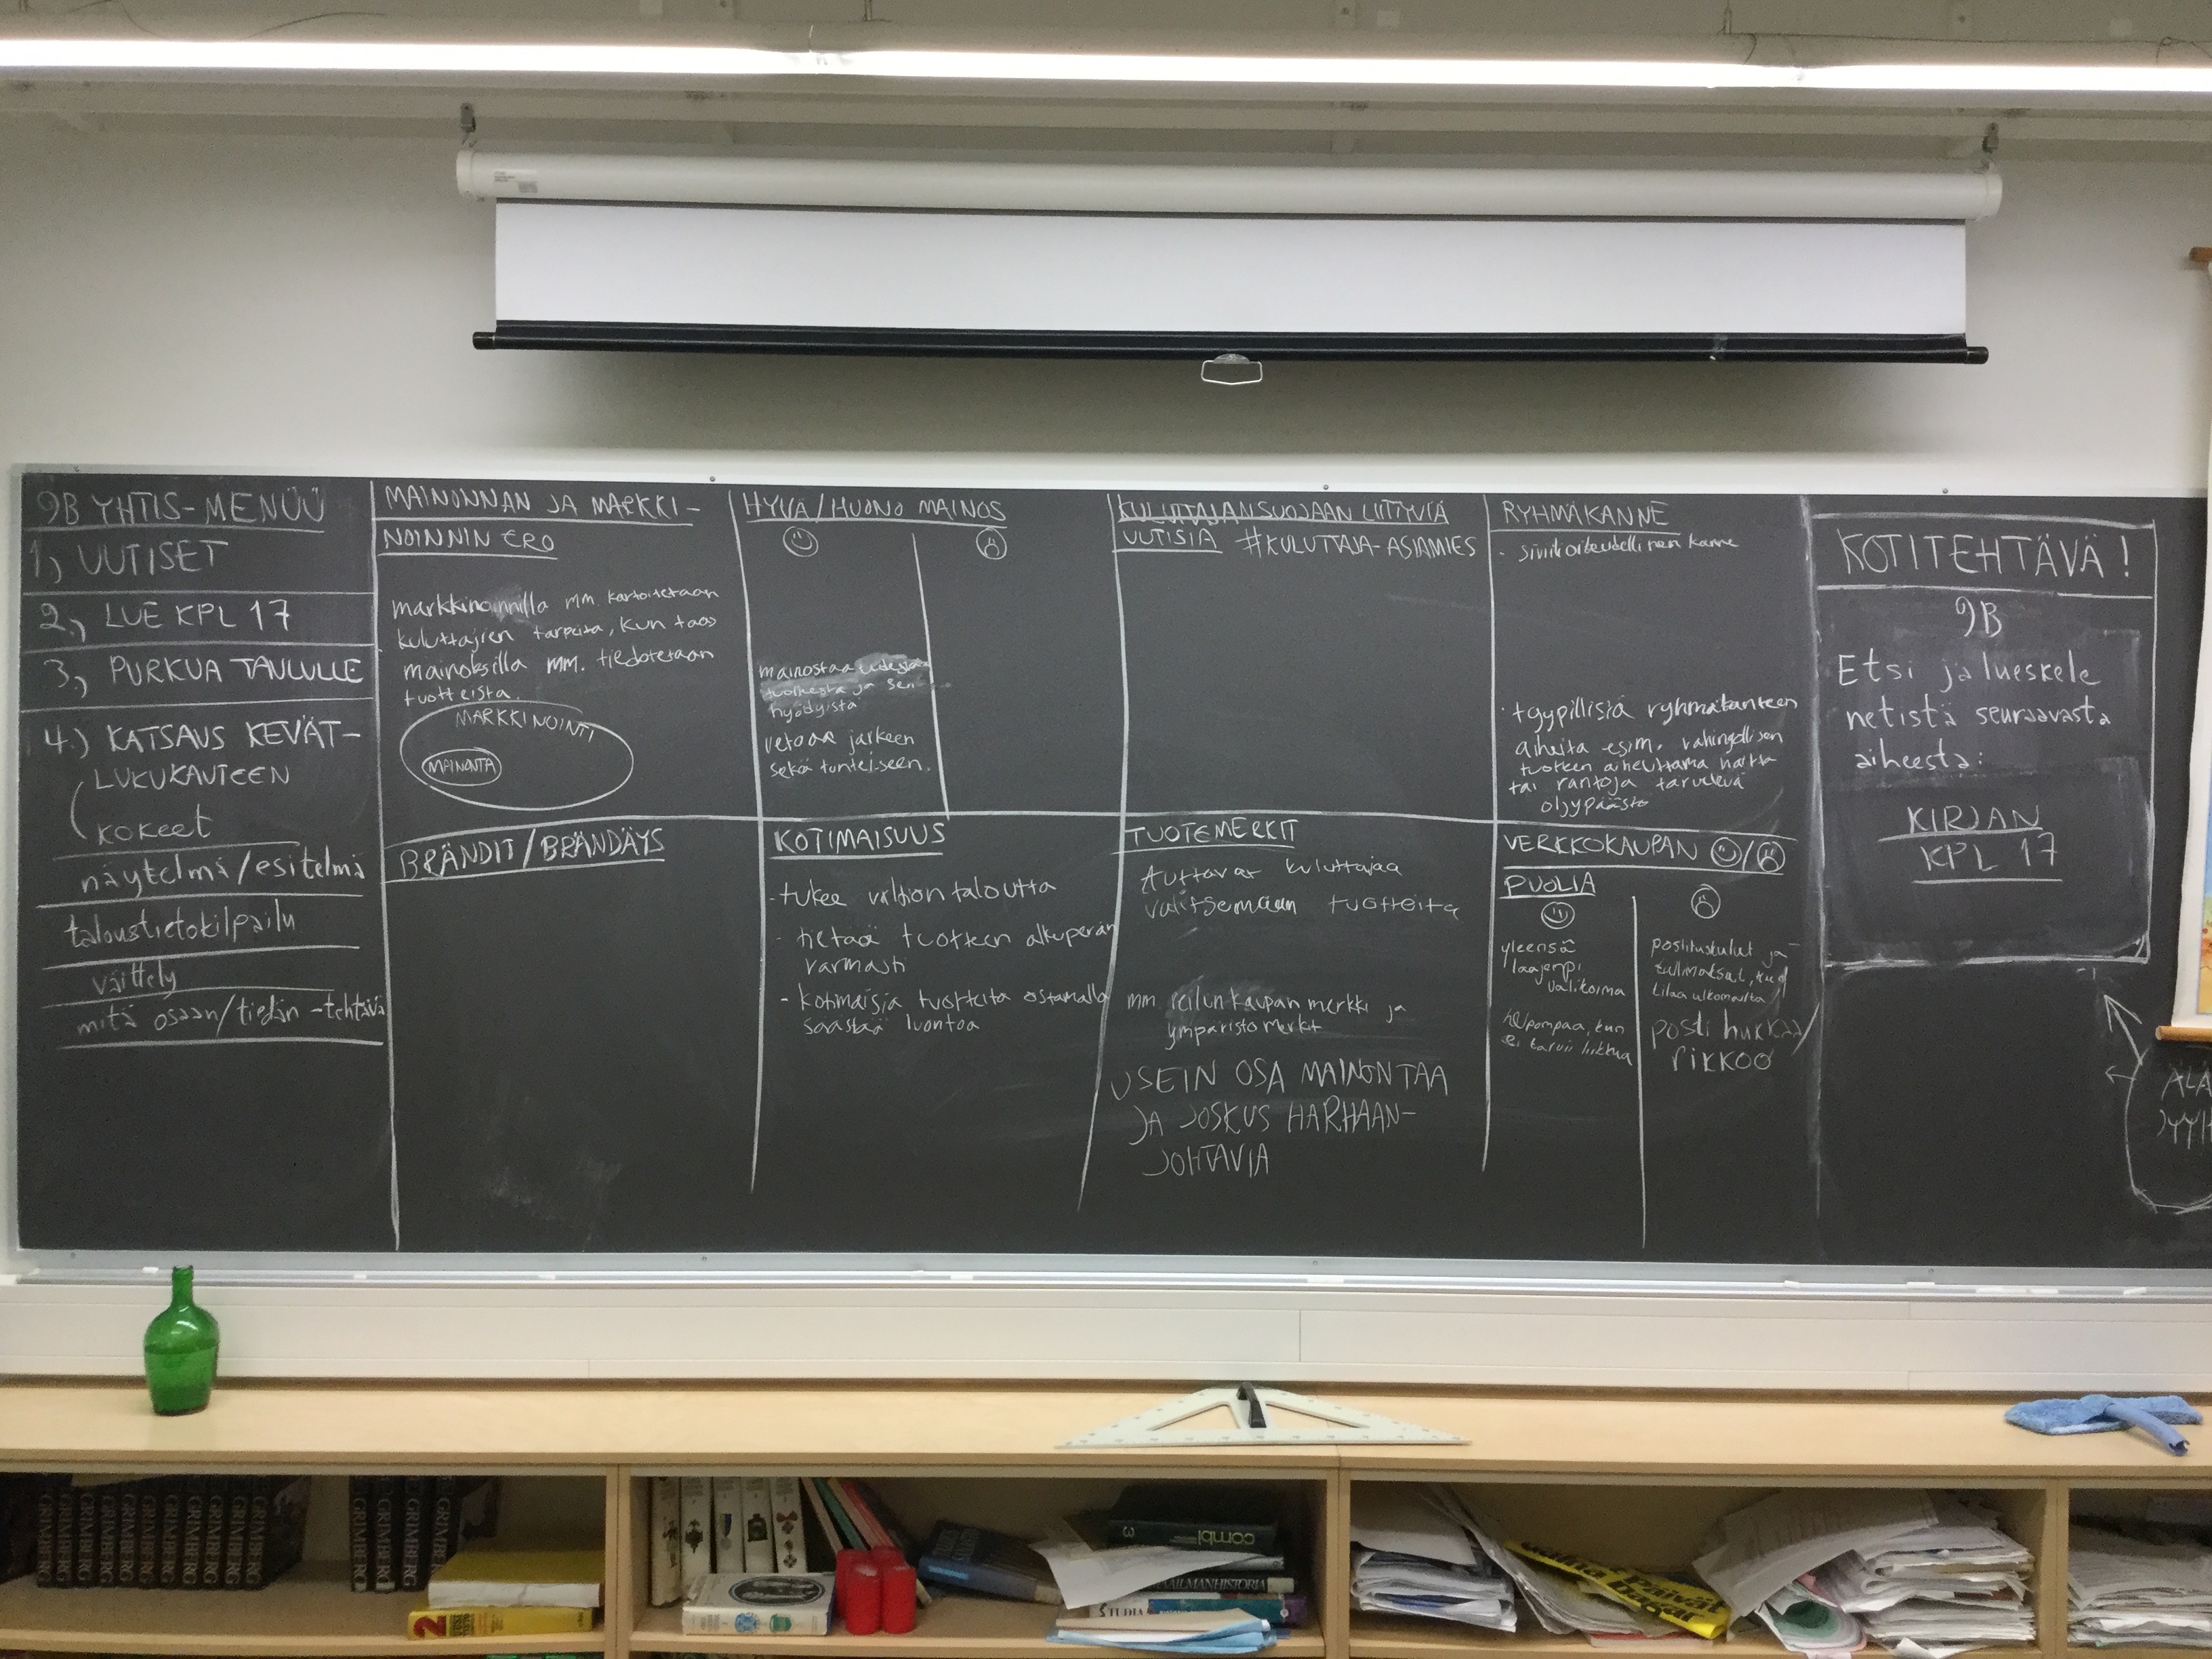 9B YHTIS-MENÜÜ
1) UUTISET
2.) LUE KPL 17
3.) PURKUA TAULULLE
4.) KATSAUS KEVÄT-
LUKUKAUTEEN
(kokeet
näytelmä/esitelmä
taloustietokilpailu
väittely
mitä osaan/tiedän -tehtävä
MAINONNAN JA MARKKI-
NOINNIN ERO
markkinoinnilla mm. kartoitetaan
kuluttajien tarpeita, kun taas
mainoksilla mm. tiedotetaan
tuotteista.
MARKKINOINTI
MAINONTA
BRÄNDIT/BRÄNDÄYS
HYVÄ/HUONO MAINOS
mainostaa uudesta
tuotteesta ja sen
hyödyistä
vetoaa järkeen
sekä tunteiseen.
KOTIMAISUUS
-tukee valtion taloutta
- tietää tuotteen alkuperän
varmasti
- kotimaisia tuotteita ostamalla
säästää luontoa
KULUTTAJANSUOJAAN LIITTYVIÄ
UUTISIA #KULUTTAJA-ASIAMIES
TUOTEMERKIT
Auttavat kuluttajaa
valitsemaan tuotteita
mm reilun kaupan merkki ja
ympäristömerkit
USEIN OSA MAINONTAA
JA JOSKUS HARHAAN-
JOHTAVIA
RYHMÄKANNE
- siviilioikeudellinen kanne
· tyypillisiä ryhmäkanteen
aiheita esim. vahingollisen
tuotteen aiheuttama haitta
tai rantoja tärvelevä
öljypäästö
VERKKOKAUPAN ☺/☹
PUOLIA
yleensä
laajempi
valikoima
helpompaa, kun
ei tarvii liikkua
postituskulut ja
tullimaksut, kun
tilaa ulkomailta
posti hukkaa/
rikkoo
KOTITEHTÄVÄ!
9B
Etsi ja lueskele
netistä seuraavasta
aiheesta:
KIRJAN
KPL 17
ÄLÄ
GRIMBERG
GRIMBERG
GRIMBERG
GRIMBERG
GRIMBERG
GRIMBERG
GRIMBERG
GRIMBERG
GRIMBERG
GRIMBERG
GRIMBERG
GRIMBERG
GRIMBERG
GRIMBERG
2
combi
3
STUDIA